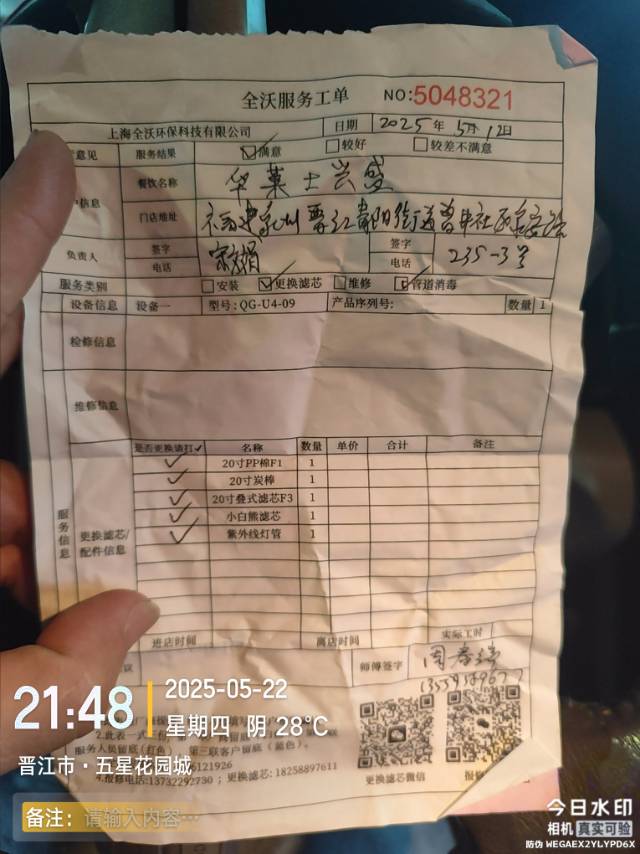 全沃服务工单 NO:5048321
上海全沃环保科技有限公司 日期 2025年 5月12日
意见 服务结果 满意 较好 较差不满意
信息 餐饮名称 华莱士兴盛
门店地址
负责人 签字 签字
电话 电话 235-3号
服务类别 安装 更换滤芯 维修 管道消毒
设备信息 设备一 型号:QG-U4-09 产品序列号: 数量 1
检修信息
维修信息
是否更换请打✓ 名称 数量 单价 合计 备注
✓ 20寸PP棉F1 1
✓ 20寸炭棒 1
✓ 20寸叠式滤芯F3 1
✓ 小白熊滤芯 1
✓ 紫外线灯管 1
服务信息 更换滤芯/配件信息
进店时间 离店时间 实际工时
议 师傅签字
服务人员留底(红色) 第三联客户留底(蓝色)。
121926
4.报修电话:13732292730; 更换滤芯:18258897611
更换滤芯微信 报修
21:48
2025-05-22
星期四 阴 28°C
晋江市·五星花园城
备注: 请输入内容…
今日水印
相机 真实可验
防伪 WEGAEX2YLYPD6X